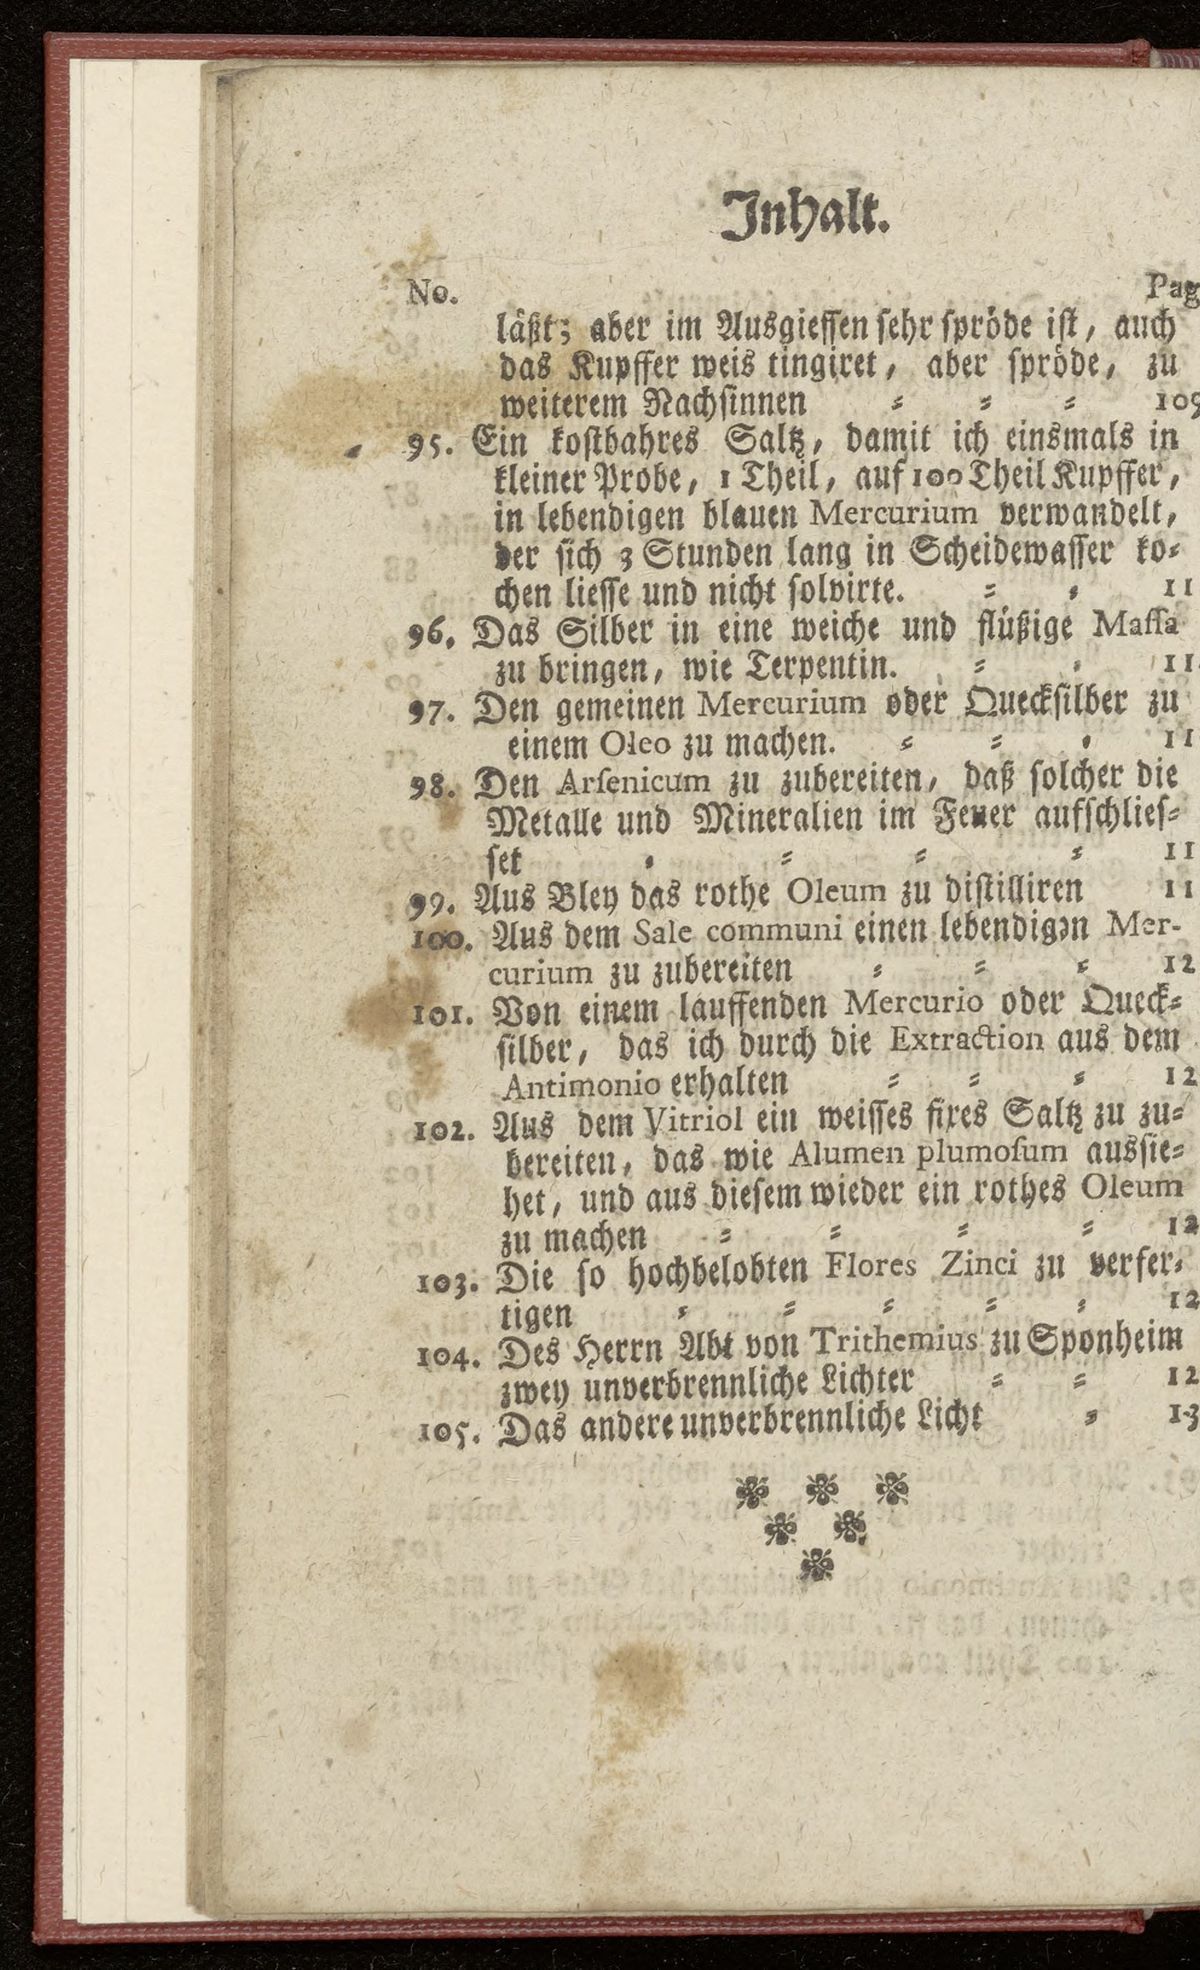 Inhalt.
No. Pag
läßt; aber im Ausgieſſen ſehr ſpröde iſt, auch
das Kupffer weis tingiret, aber ſpröde, zu
weiterem Nachſinnen ⸗ ⸗ ⸗ 109
95. Ein koſtbahres Saltz, damit ich einsmals in
kleiner Probe, 1 Theil, auf 100 Theil Kupffer,
in lebendigen blauen Mercurium verwandelt,
der ſich 3 Stunden lang in Scheidewaſſer ko⸗
chen lieſſe und nicht ſolvirte. ⸗ ⸗ 11
96. Das Silber in eine weiche und flüßige Maſſa
zu bringen, wie Terpentin. ⸗ ⸗ 11
97. Den gemeinen Mercurium oder Queckſilber zu
einem Oleo zu machen. ⸗ ⸗ ⸗ 11
98. Den Arſenicum zu zubereiten, daß ſolcher die
Metalle und Mineralien im Feuer aufſchlieſ⸗
ſet ⸗ ⸗ ⸗ ⸗ 11
99. Aus Bley das rothe Oleum zu diſtilliren 11
100. Aus dem Sale communi einen lebendigen Mer-
curium zu zubereiten ⸗ ⸗ ⸗ 12
101. Von einem lauffenden Mercurio oder Queck⸗
ſilber, das ich durch die Extraction aus dem
Antimonio erhalten ⸗ ⸗ ⸗ 12
102. Aus dem Vitriol ein weiſſes fixes Saltz zu zu⸗
bereiten, das wie Alumen plumoſum ausſie⸗
het, und aus dieſem wieder ein rothes Oleum
zu machen ⸗ ⸗ ⸗ ⸗ 12
103. Die ſo hochbelobten Flores Zinci zu verfer⸗
tigen ⸗ ⸗ ⸗ ⸗ ⸗ 12
104. Des Herrn Abt von Trithemius zu Sponheim
zwey unverbrennliche Lichter ⸗ ⸗ 12
105. Das andere unverbrennliche Licht ⸗ 13